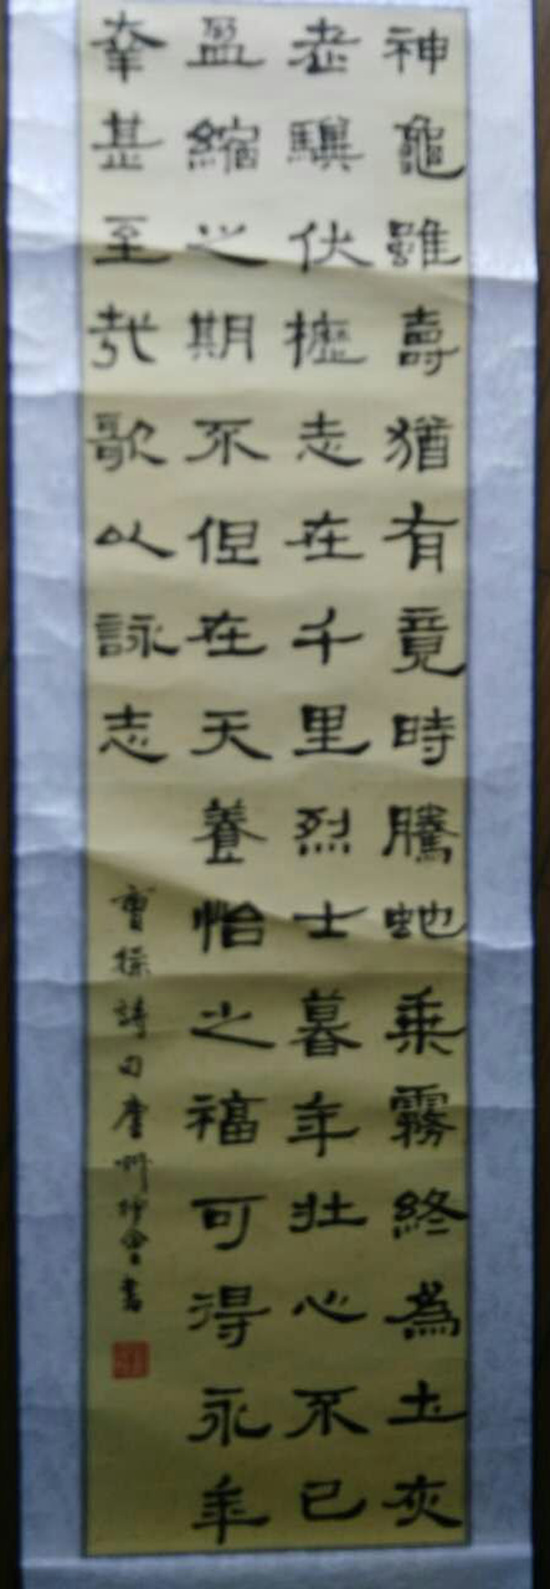 神龜雖壽猶有竟時騰虵乗霧終為土灰
老驥伏櫪志在千里烈士暮年壯心不已
盈縮之期不但在天養怡之福可得永年
幸甚至哉歌以詠志
曹操詩句 書